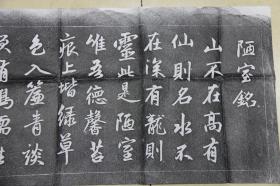 陋室銘
山不在高有
仙則名水不
在深有龍則
靈此是陋室
唯吾德馨苔
痕上堦綠草
色入簾青談
笑有鴻儒往